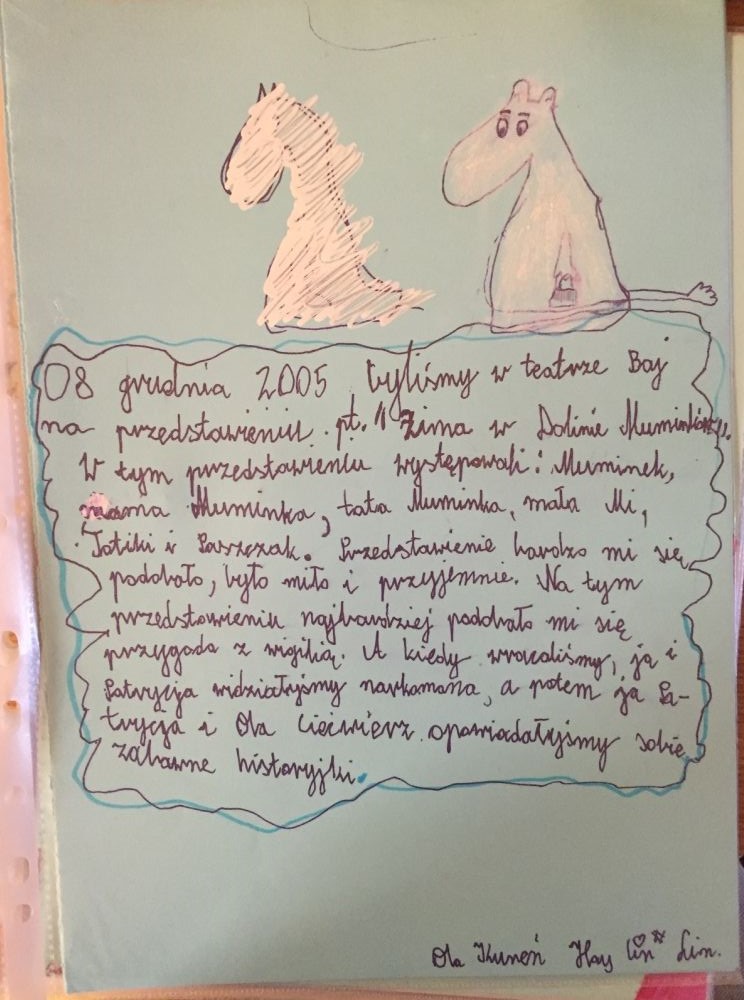 08 grudnia 2005 byliśmy w teatrze Baj
na przedstawieniu pt. "Zima w Dolinie Muminków".
W tym przedstawieniu występowali: Muminek,
mama Muminka, tata Muminka, mała Mi,
Totiki i Paszczak. Przedstawienie bardzo mi się
podobało, było miło i przyjemnie. Na tym
przedstawieniu najbardziej podobało mi się
przygoda z wigilią. A kiedy wracaliśmy, ja i
Patrycja widziałyśmy narkomana, a potem ja Pa-
trycja i Ola Ciećwierz opowiadałyśmy sobie
zabawne historyjki.
Ola Kuneń Hay lin Lin.